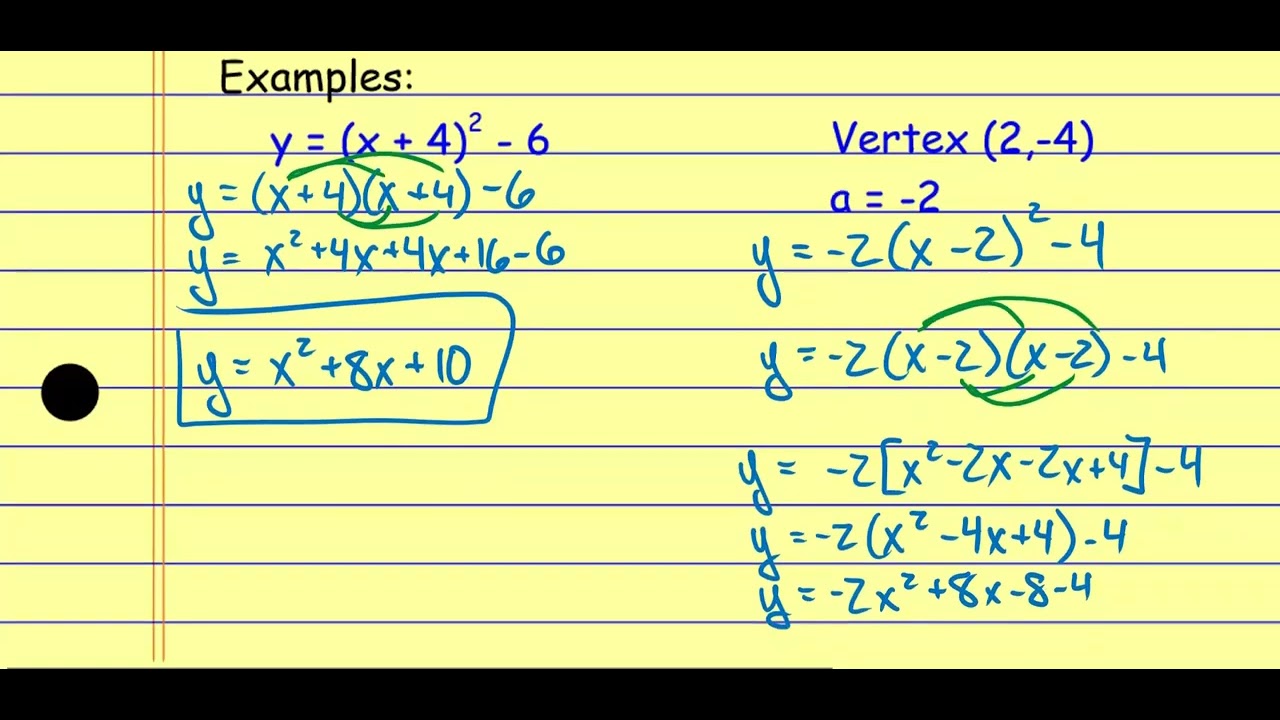 Examples:
y = (x + 4)² - 6
y = (x+4)(x+4) - 6
y = x² +4x+4x+16-6
y = x² +8x+10
Vertex (2,-4)
a = -2
y = -2(x -2)² -4
y = -2(x -2)(x -2) -4
y = -2[x² -2x -2x+4] -4
y = -2(x² -4x+4) -4
y = -2x² +8x -8 -4